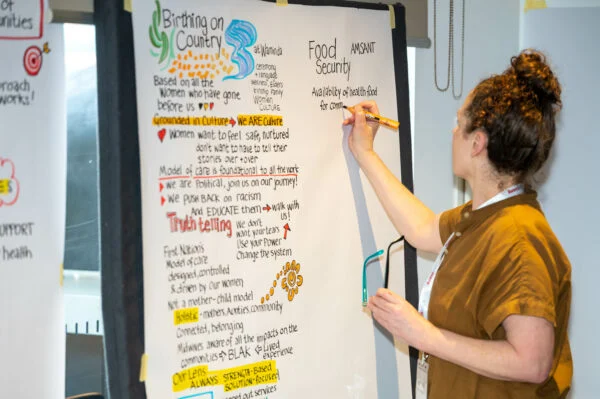 of
nities
roach
orks!
UPPORT
health
Birthing on
Country
at Waminda
ceremony
+ language
Wellness, Elders
Kinship Family
Women
CULTURE
Based on all the
Women who have gone
before us
Grounded in Culture → We ARE Culture
Women want to feel safe, nurtured
don't want to have to tell their
stories over + over
Model of care is foundational to all the work
we are Political, join us on our journey!
We PUSH BACK on racism
And EDUCATE them → walk with
us!
Truth telling
We don't
want your tears
Use your Power
Change the system
First Nations
Model of care
designed, controlled
& driven by our women
Not a mother-child model
Holistic - mothers, Aunties, community
Connected, belonging
Midwives aware of all the impacts on the
communities → BLAK ← Lived
experience
Our Lens
ALWAYS STRENGTH-BASED
SOLUTION-focused
out services
Food
Security
AMSANT
Availability of health food
for com